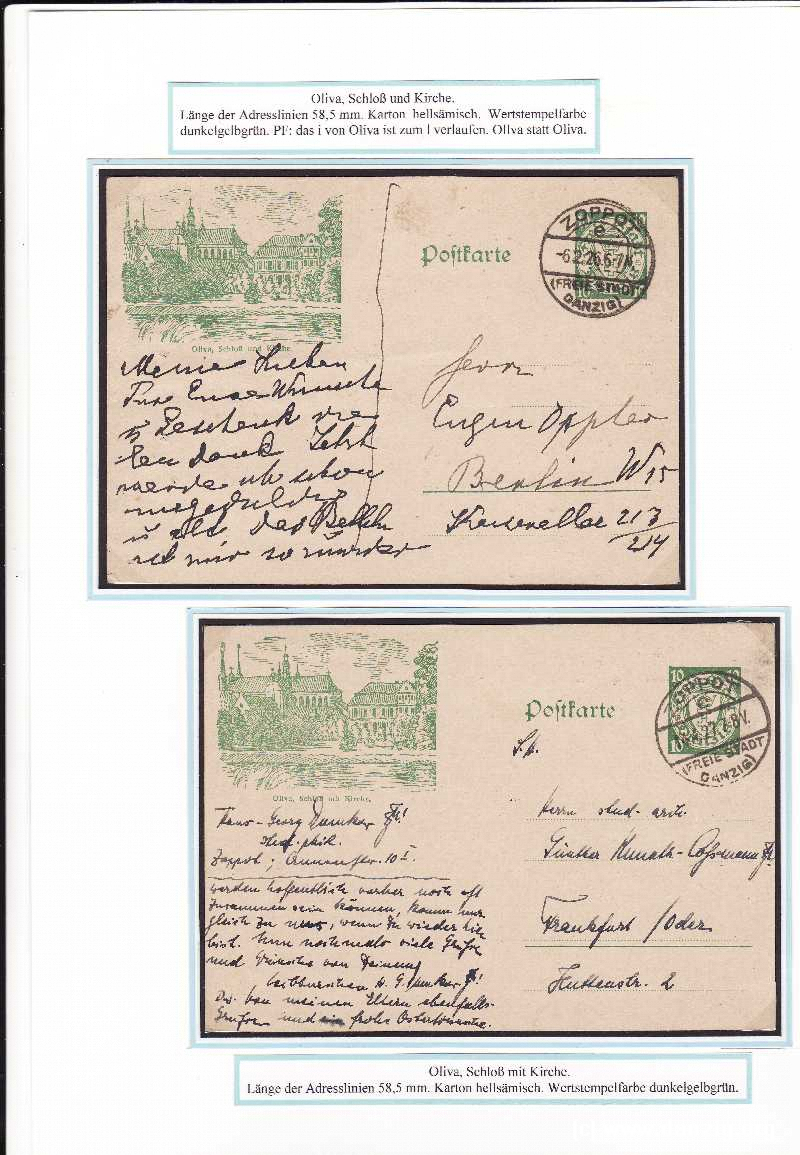 Oliva, Schloß und Kirche.
Länge der Adresslinien 58,5 mm. Karton hellsämisch. Wertstempelfarbe
dunkelgelbgrün. PF: das i von Oliva ist zum l verlaufen. Ollva statt Oliva.
ZOPPOT
e
-6.2.26.6-7N.
(FREIE STADT
DANZIG)
Postkarte
Oliva, Schloß und Kirche.
Meine Lieben
Eure Wünsche
Geschenk vie
len Dank Jetzt
werde ich schon
ungeduldig
u als das
mir
Herrn
Eugen Oppler
Berlin W 15
Kaiserallee 213/
214
10
10
ZOPPOT
e
(FREIE STADT
DANZIG)
Postkarte
Oliva, Schloß mit Kirche.
Hans-Georg
stud. phil.
Zoppot,
werden hoffentlich vorher noch oft
zusammen sein können, komm nur
gleich zu uns, wenn Du wieder hier
bist. Nun nochmals viele Grüße
und Wünsche von Deinem
Leibburschen H. G.
von meinen Eltern ebenfalls
Grüße und frohe Osterwünsche.
Herrn stud. arch.
Günther
Frankfurt / Oder
Huttenstr. 2
Oliva, Schloß mit Kirche.
Länge der Adresslinien 58,5 mm. Karton hellsämisch. Wertstempelfarbe dunkelgelbgrün.